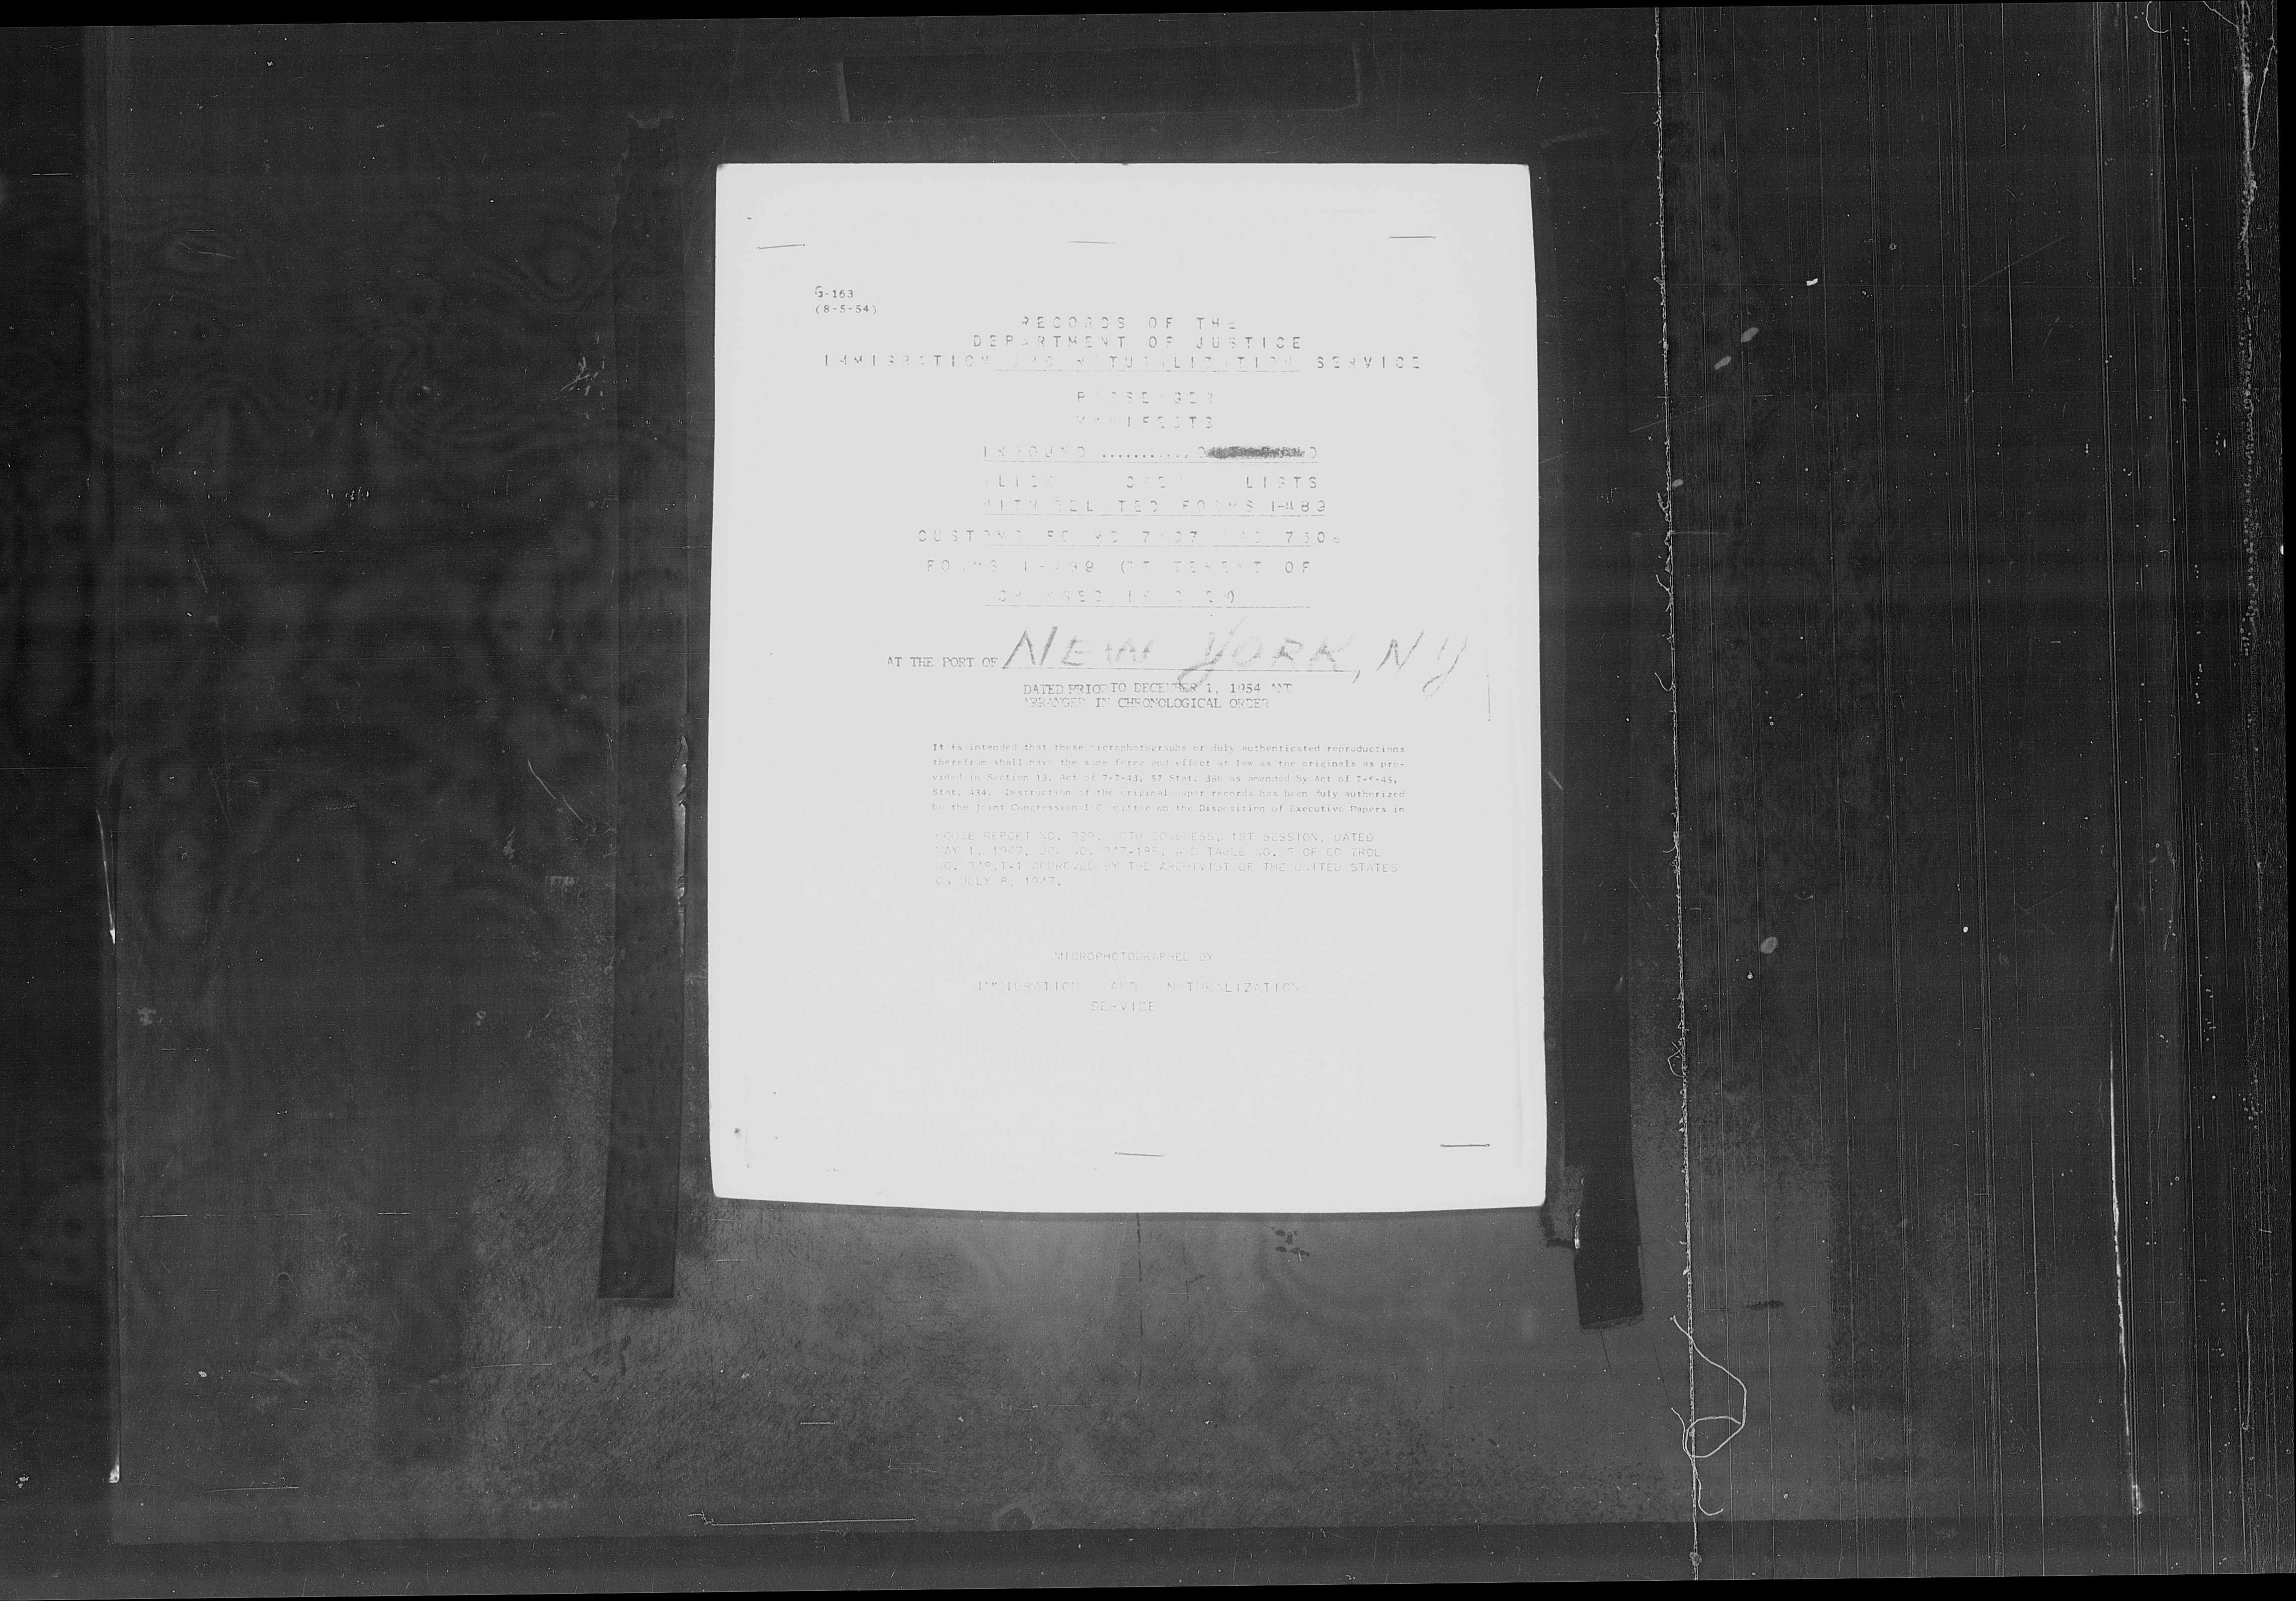 G-163
(8-5-54)
RECORDS OF THE
DEPARTMENT OF JUSTICE
IMMIGRATION AND NATURALIZATION SERVICE
PASSENGER
MANIFESTS
INBOUND ...........
ALIEN CREW LISTS
WITH RELATED FORMS I-489
CUSTOMS FORMS 7507 AND
FORMS I-489 (STATEMENT OF
CHANGES IN CREW)
AT THE PORT OF NEW YORK, NY
DATED PRIOR TO DECEMBER 1, 1954 AND
ARRANGED IN CHRONOLOGICAL ORDER
It is intended that these microphotographs or duly authenticated reproductions
therefrom shall have the same force and effect at law as the originals as pro-
vided in Section 13, Act of 7-7-43, 57 Stat. as amended by Act of 7-6-45,
Stat. 434. Destruction of the original paper records has been duly authorized
by the Joint Congressional Committee on the Disposition of Executive Papers in
HOUSE REPORT NO. CONGRESS, 1ST SESSION, DATED
MAY 1, 1947, JOB NO. AND TABLE NO. 5 OF CONTROL
NO. APPROVED BY THE ARCHIVIST OF THE UNITED STATES
ON JULY 1947.
MICROPHOTOGRAPHED BY
IMMIGRATION AND NATURALIZATION
SERVICE